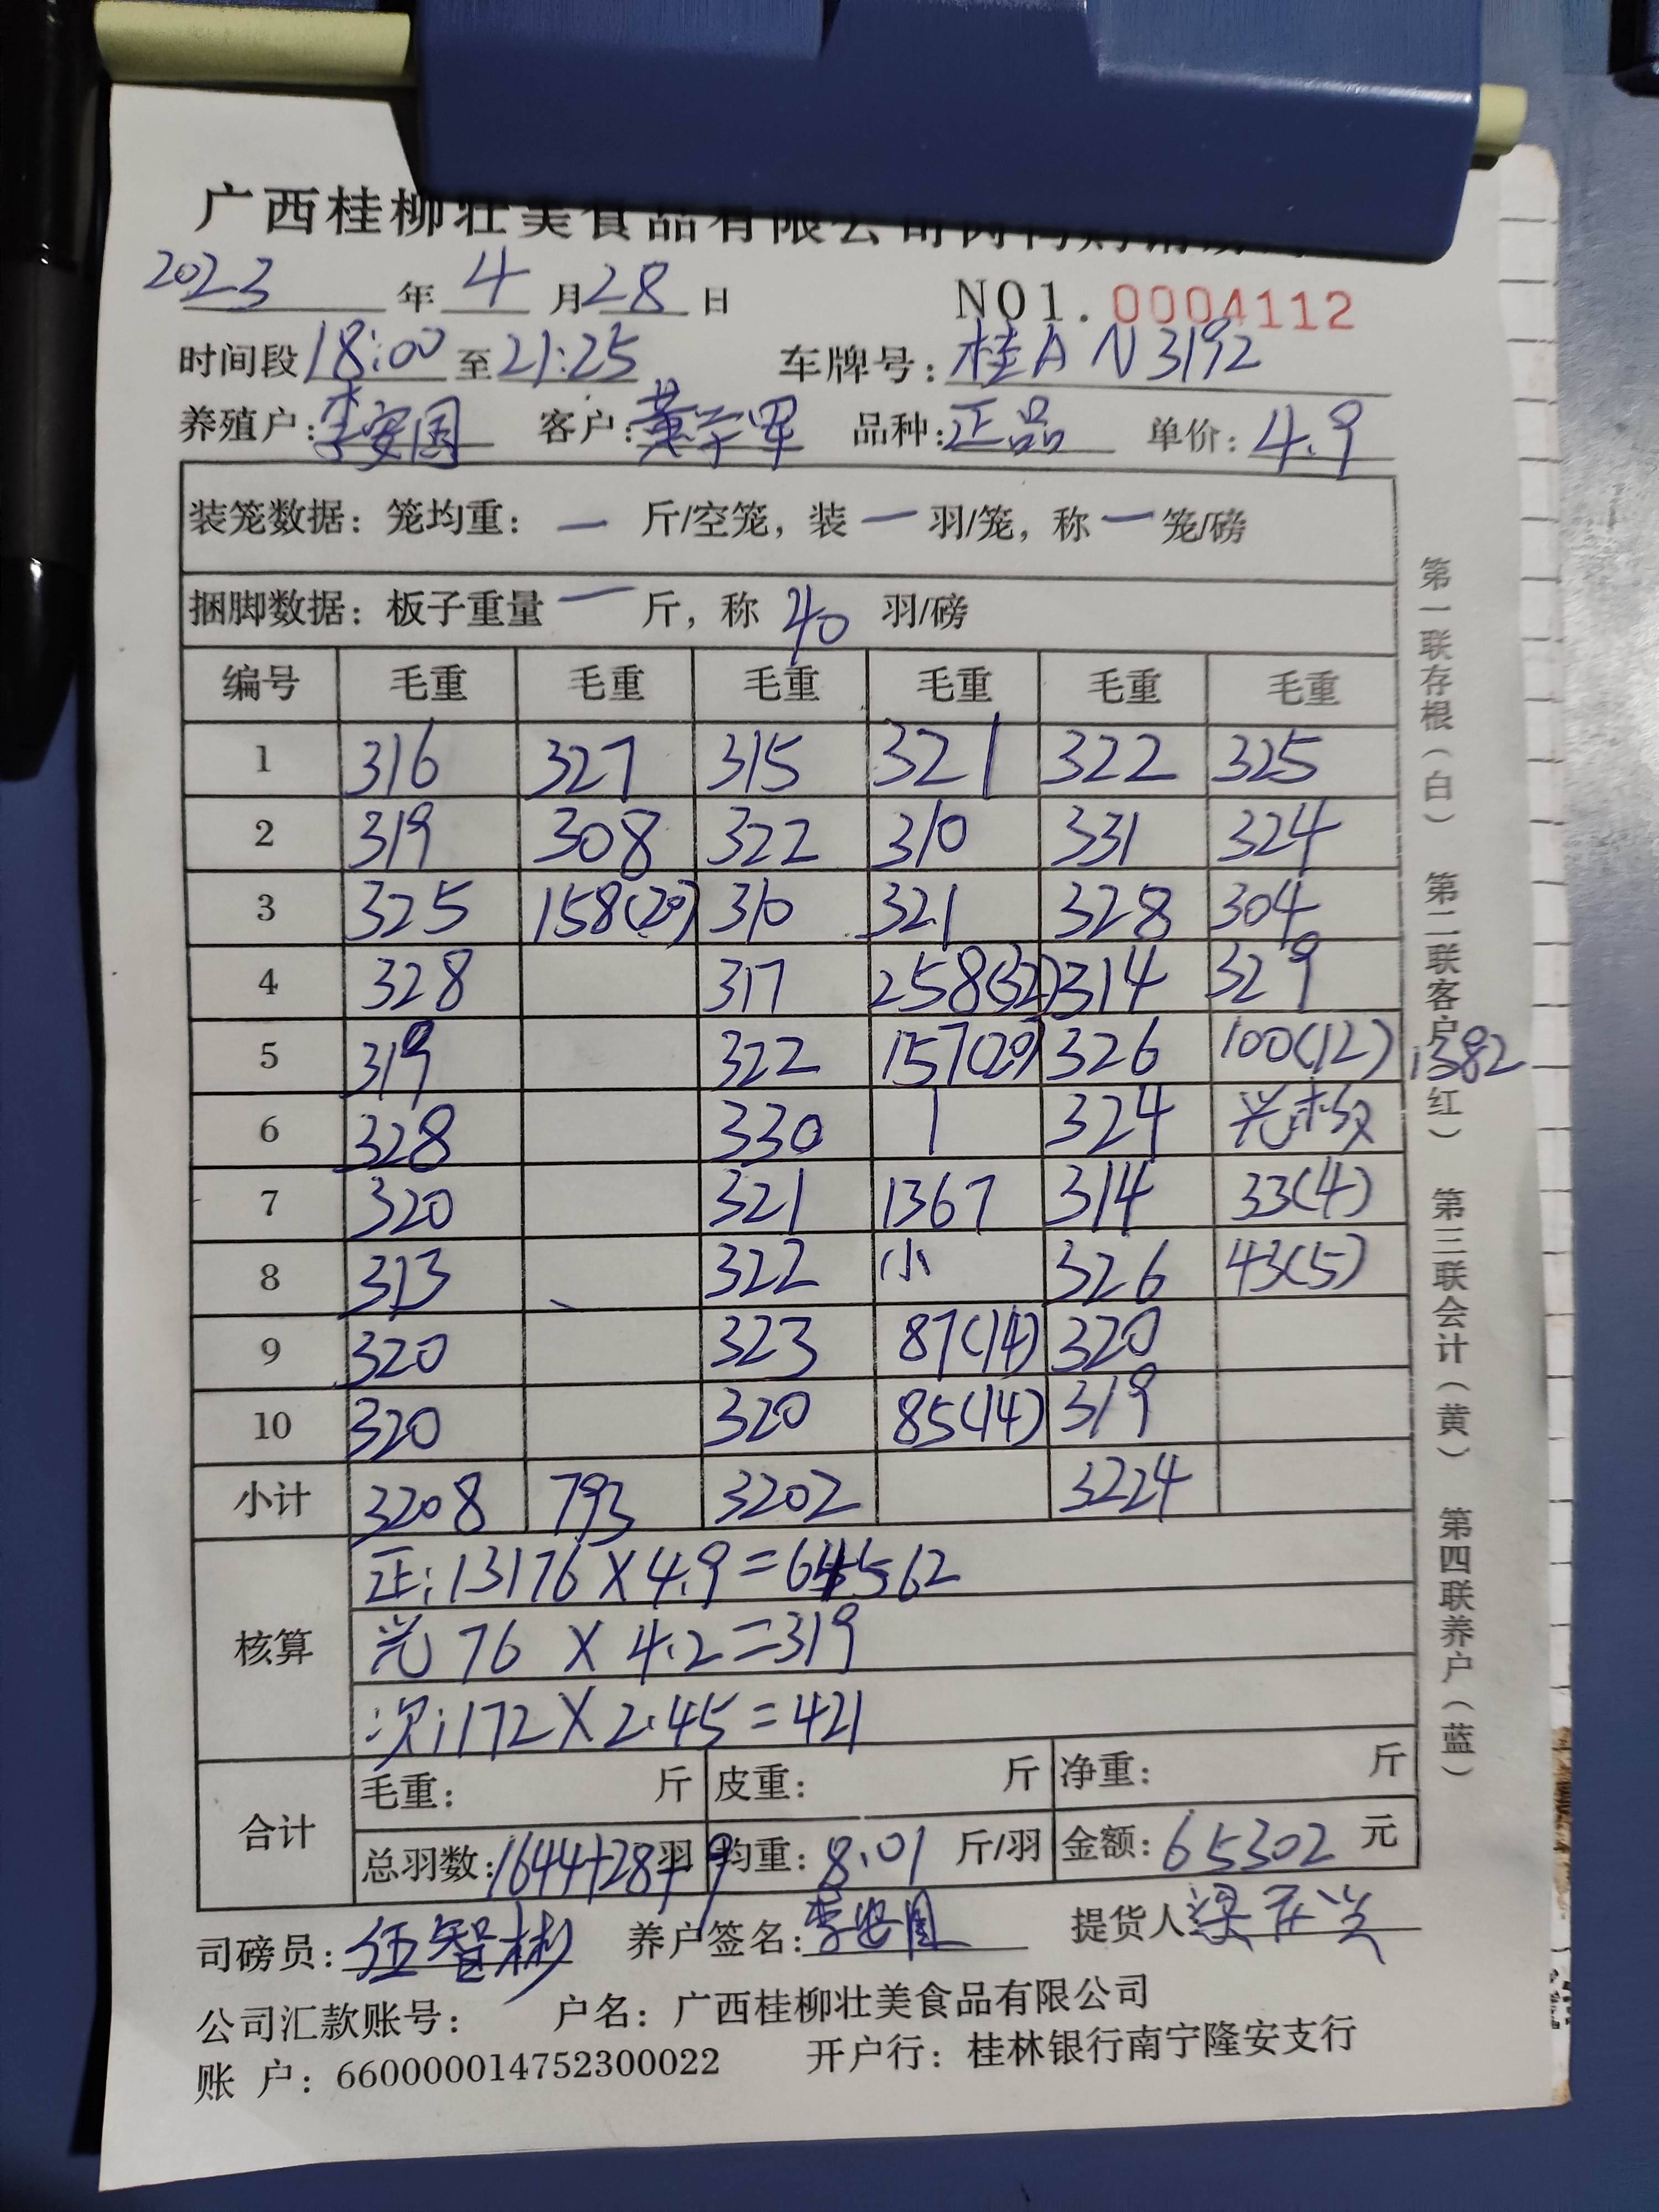 广西桂柳壮美食品有限公司
2023 年 4 月 28 日 NO1. 0004112
时间段 18:00 至 21:25 车牌号: 桂A N3192
养殖户: 李安国 客户: 黄 军 品种: 正品 单价: 4.9
装笼数据: 笼均重: — 斤/空笼, 装 — 羽/笼, 称 — 笼/磅
捆脚数据: 板子重量 — 斤, 称 40 羽/磅
编号 毛重 毛重 毛重 毛重 毛重 毛重
1 316 327 315 321 322 325
2 319 308 322 310 331 324
3 325 158(20) 310 321 328 304
4 328 317 258(32) 314 329
5 319 322 157(20) 326 100(12) 1382
6 328 330 1 324 光
7 320 321 1367 314 33(4)
8 313 322 小 326 43(5)
9 320 323 87(14) 320
10 320 320 85(14) 319
小计 3208 793 3202 3224
核算
正: 13176 X 4.9 = 64562
光 76 X 4.2 = 319
次: 172 X 2.45 = 421
合计
毛重: 斤 皮重: 斤 净重: 斤
总羽数: 1644+28+9 羽 均重: 8.01 斤/羽 金额: 65302 元
司磅员: 伍智彬 养户签名: 李安国 提货人 梁
公司汇款账号: 户名: 广西桂柳壮美食品有限公司
账 户: 660000014752300022 开户行: 桂林银行南宁隆安支行
第一联存根(白) 第二联客户(红) 第三联会计(黄) 第四联养户(蓝)